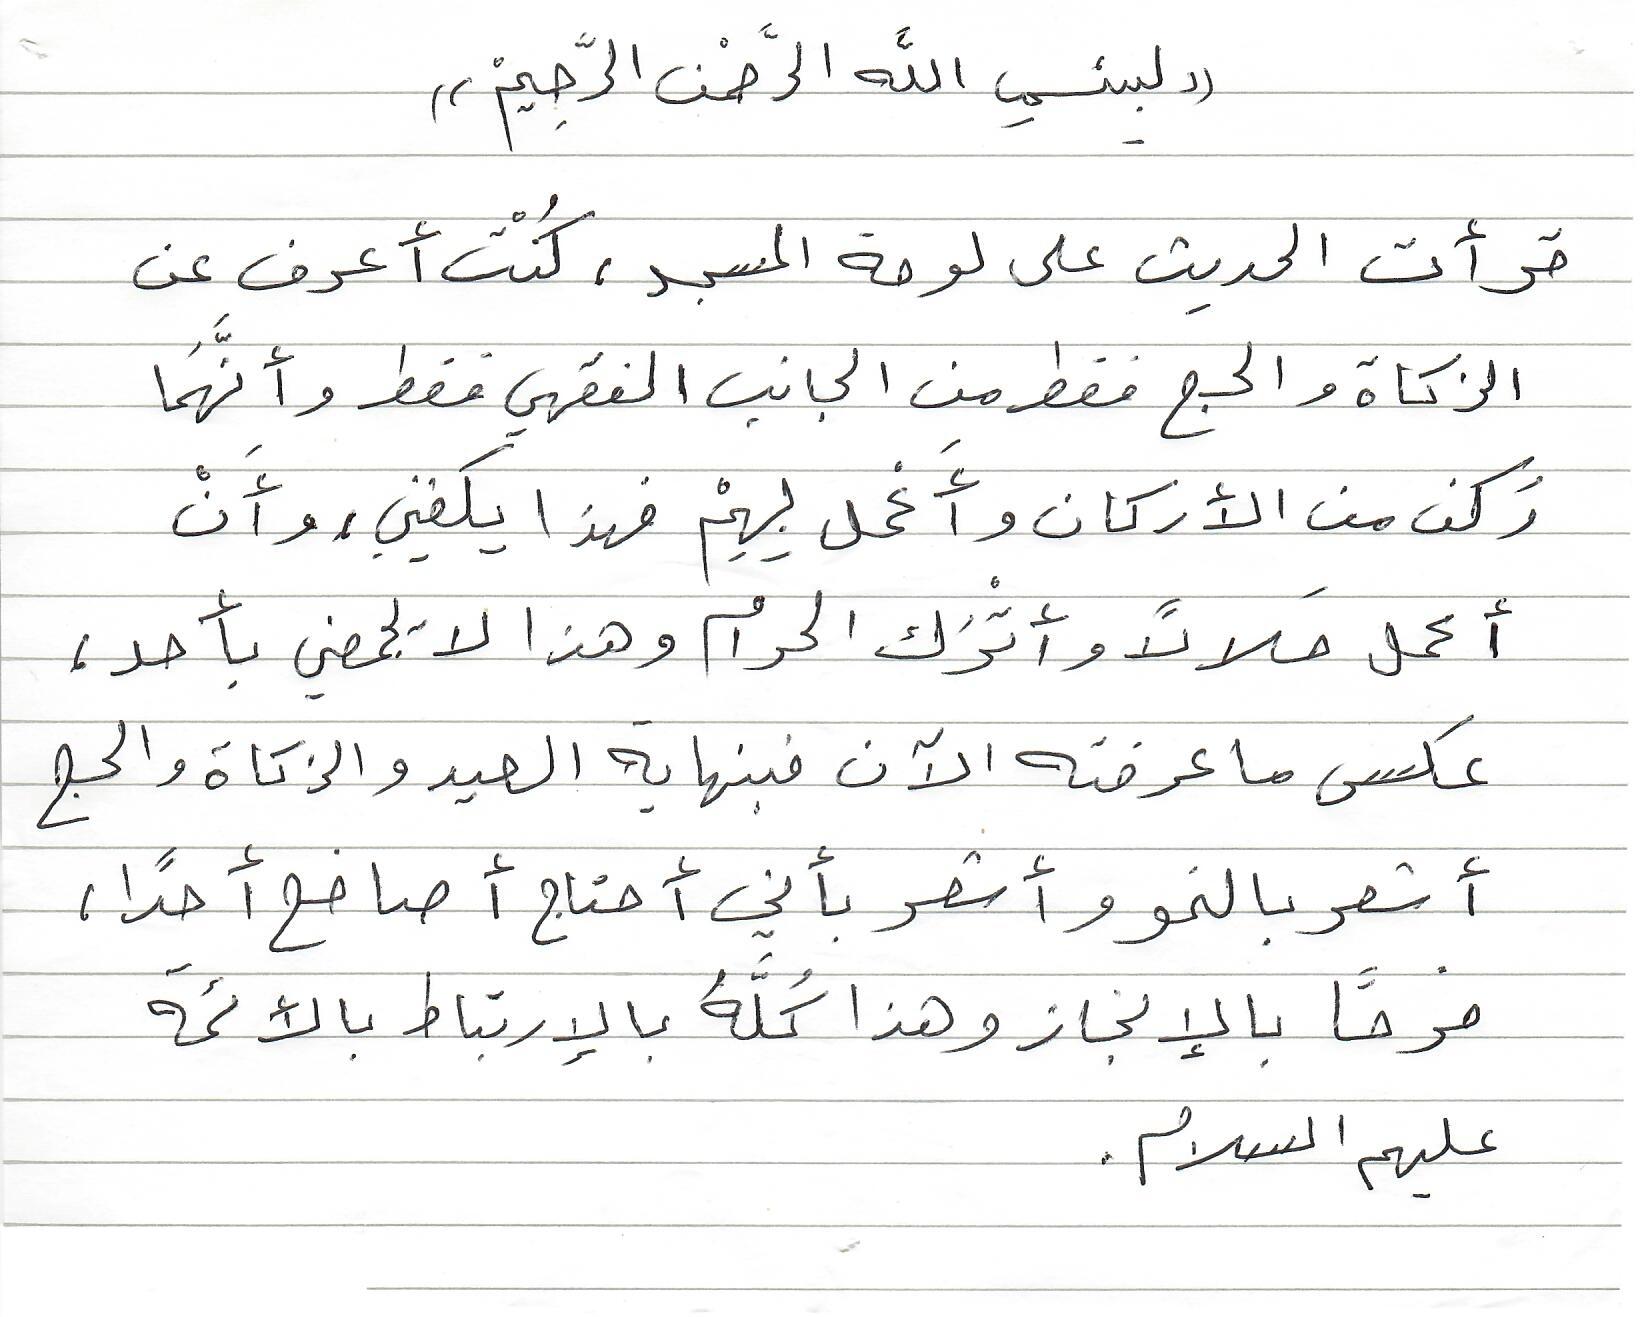 «بِسْمِ اللَّه الرَّحْمٰن الرَّحِيمْ»
قرأت الحديث على لوحة المسجد، كُنْت أعرف عن
الزكاة والحج فقط من الجانب الفقهي فقط وأنَّهُمَا
رُكن من الأركان وأَعْمل بِهِمْ فهذا يَكفيني، وأَنْ
أعمل حَلالاً وأتْرُك الحرام وهذا لا بأحد،
عكس ما عرفته الآن فبنهاية العيد والزكاة والحج
أشعر بالنمو وأشعر بأني أحتاج أصافح أحدًا،
فرحًا بالإنجاز وهذا كُلَّهُ بالإرتباط بالأئمة
عليهم السلام.